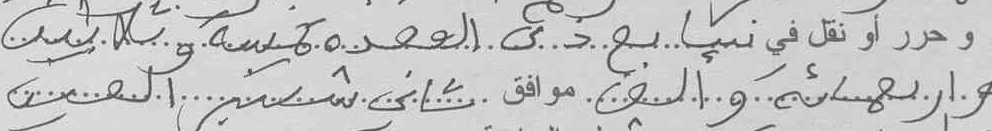 و حرر أو نقل في سابع ذي القعدة خمسة و ثلاثين
و اربعمائة و الف موافق ثاني شتنبر الفين